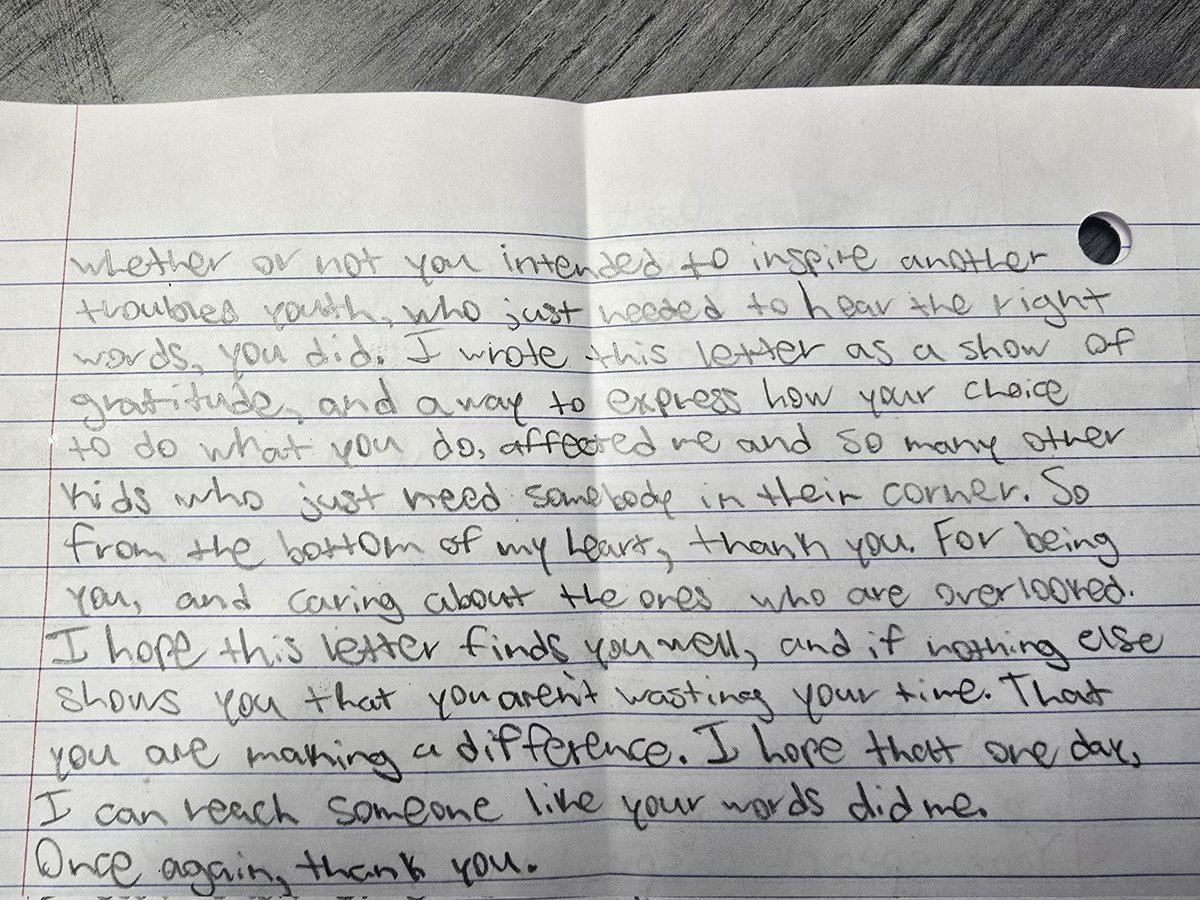 whether or not you intended to inspire another
troubled youth, who just needed to hear the right
words, you did. I wrote this letter as a show of
gratitude, and a way to express how your choice
to do what you do, affected me and so many other
kids who just need somebody in their corner. So
from the bottom of my heart, thank you. For being
you, and caring about the ones who are overlooked.
I hope this letter finds you well, and if nothing else
shows you that you aren't wasting your time. That
you are making a difference. I hope that one day,
I can reach someone like your words did me.
Once again, thank you.